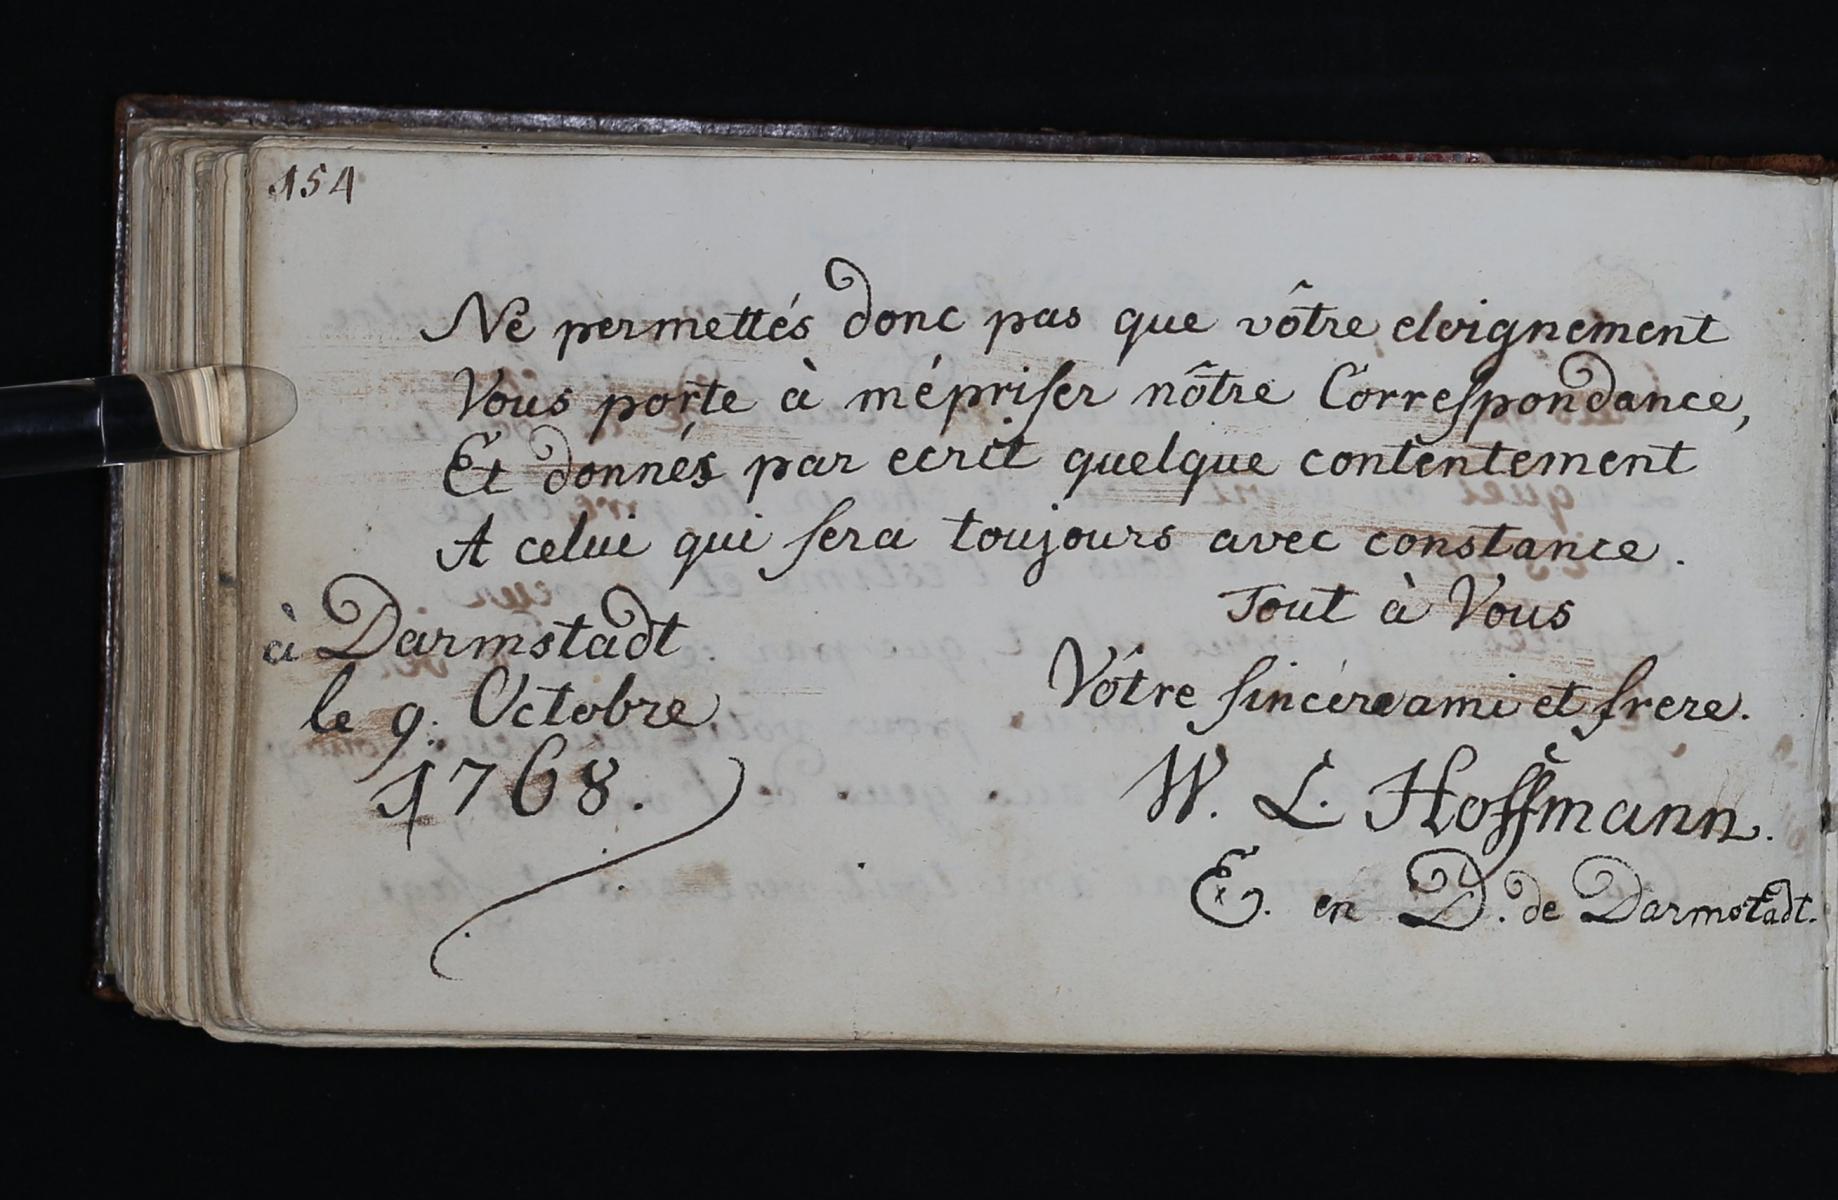 154
Ne permettés donc pas que vôtre eloignement
Vous porte à mépriser nôtre Correspondance,
Et donnés par ecrit quelque contentement
A celui qui sera toujours avec constance.
Tout à Vous
Vôtre sincére ami et frere.
W. L. Hoffmann.
E. en D. de Darmstadt.
à Darmstadt.
le 9. Octobre
1768.